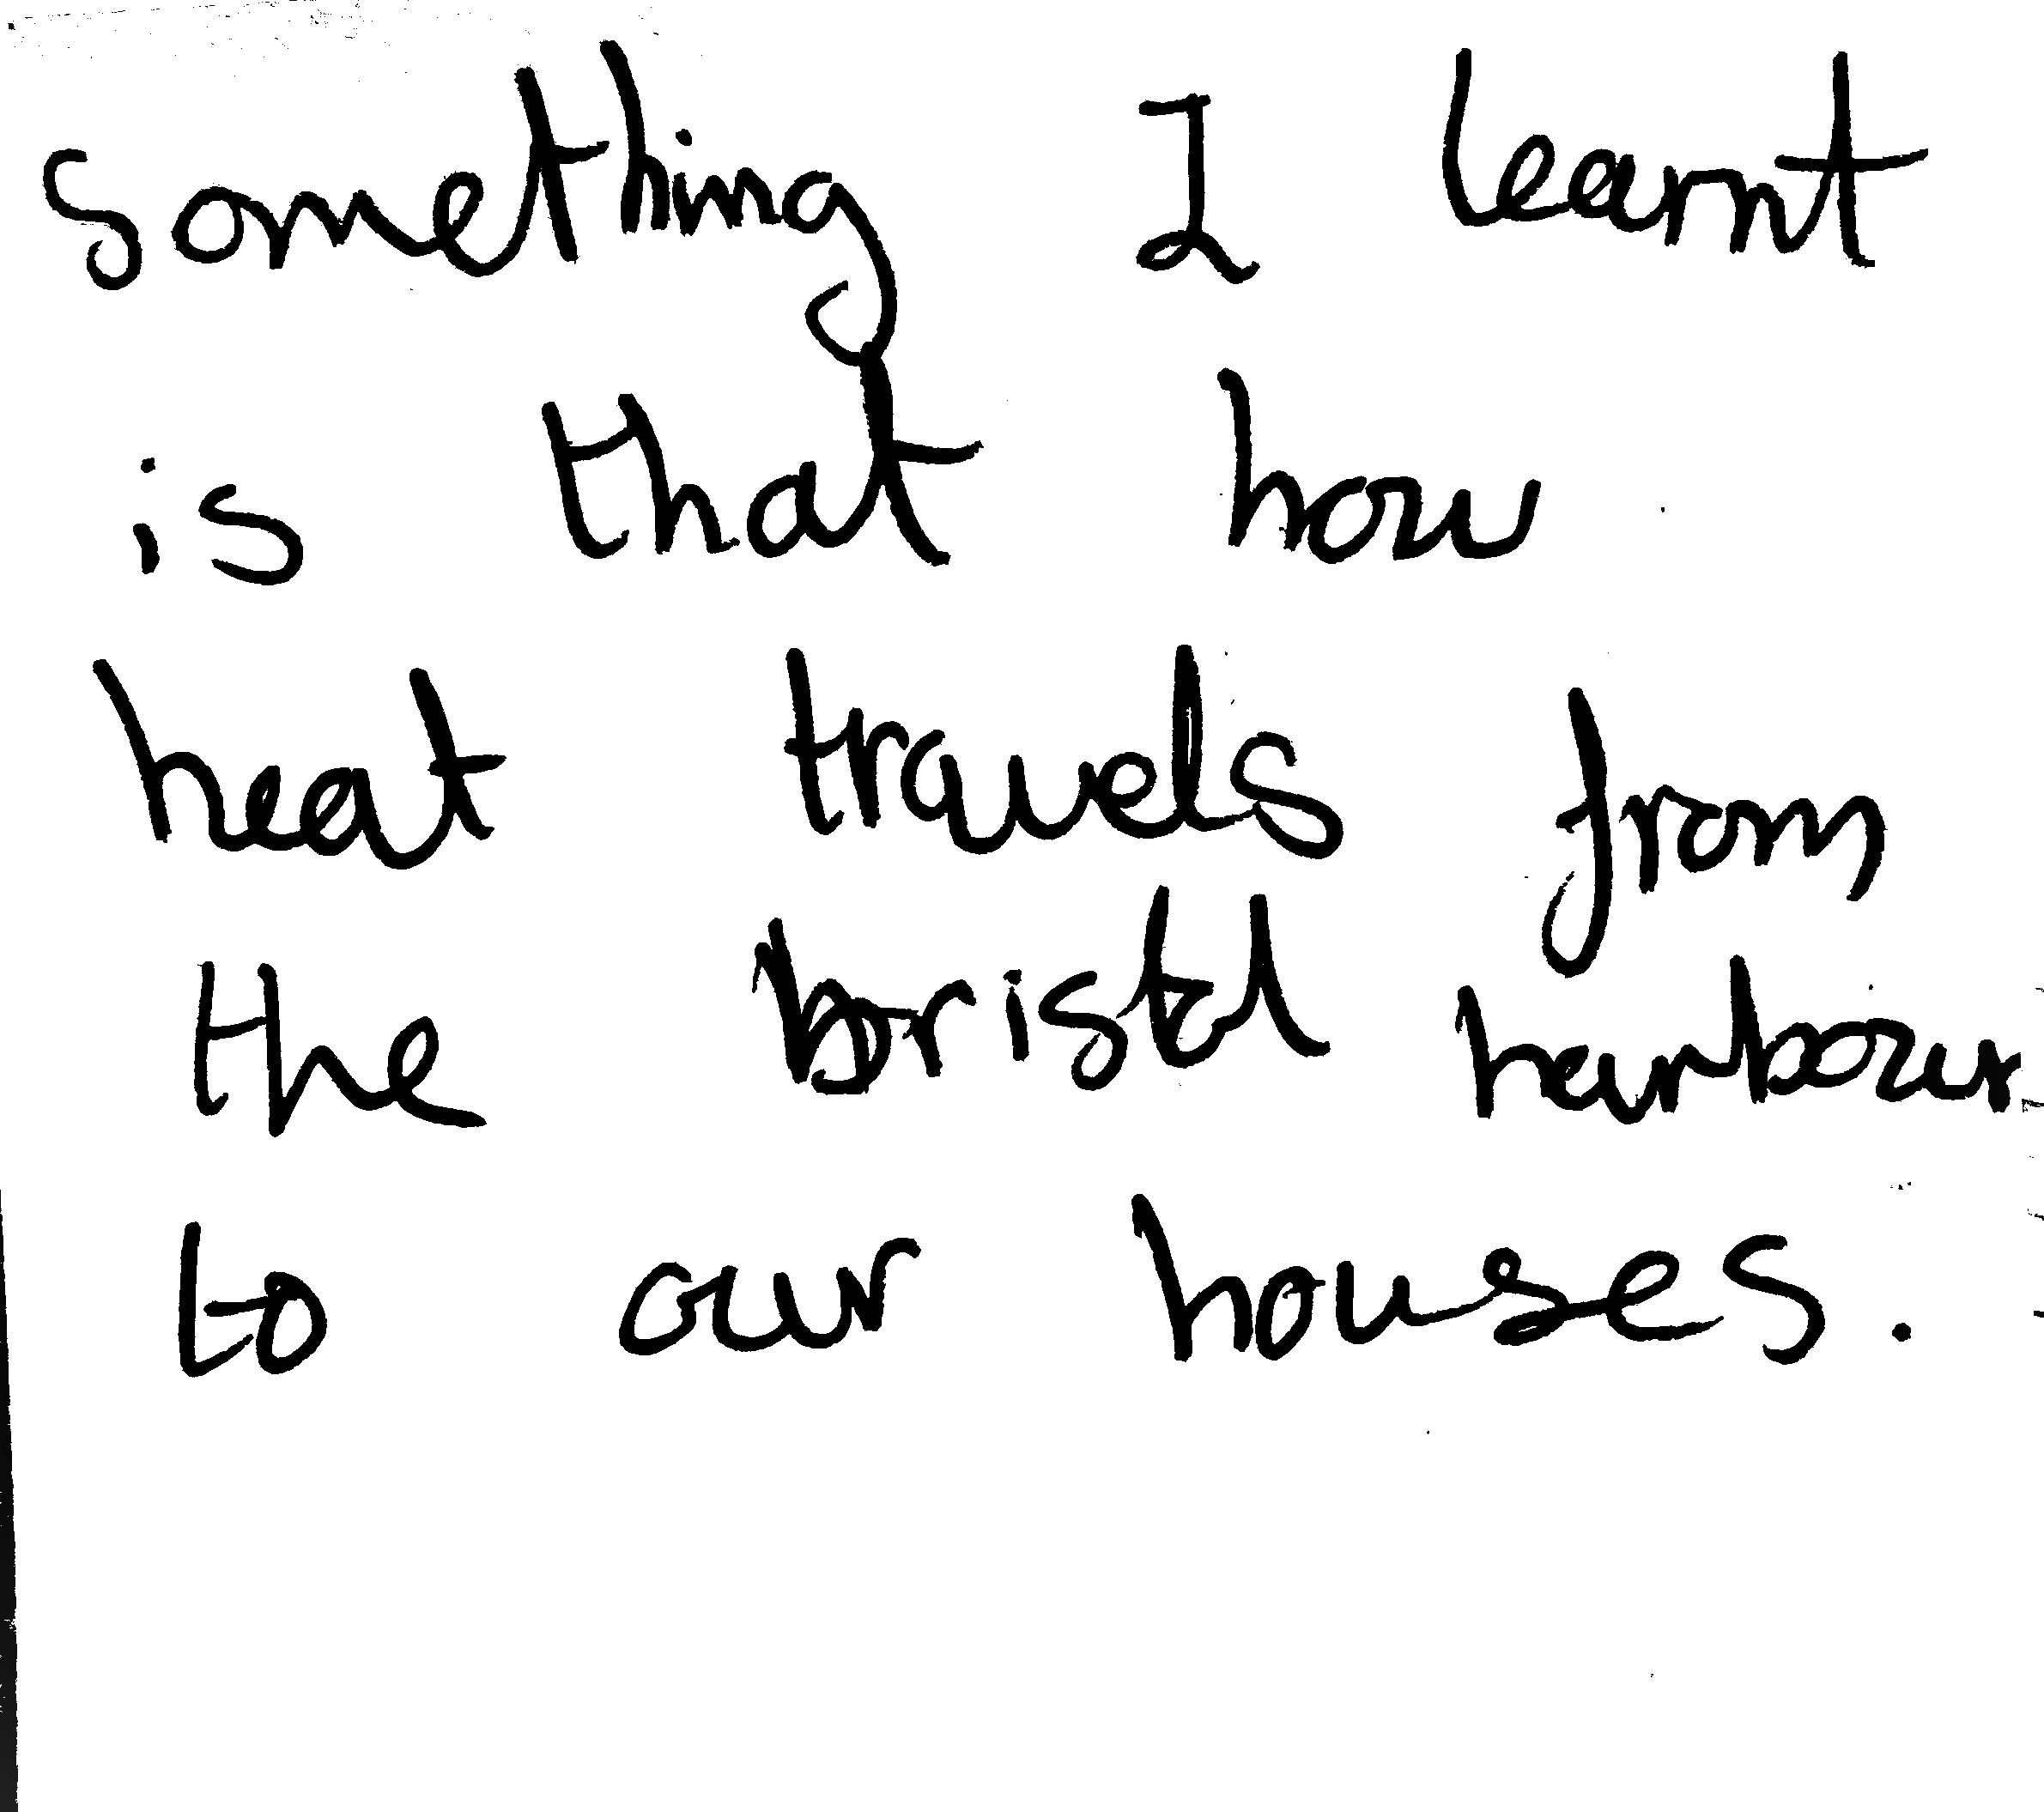 Something I learnt
is that how
heat travels from
the bristol harbour
to our houses.